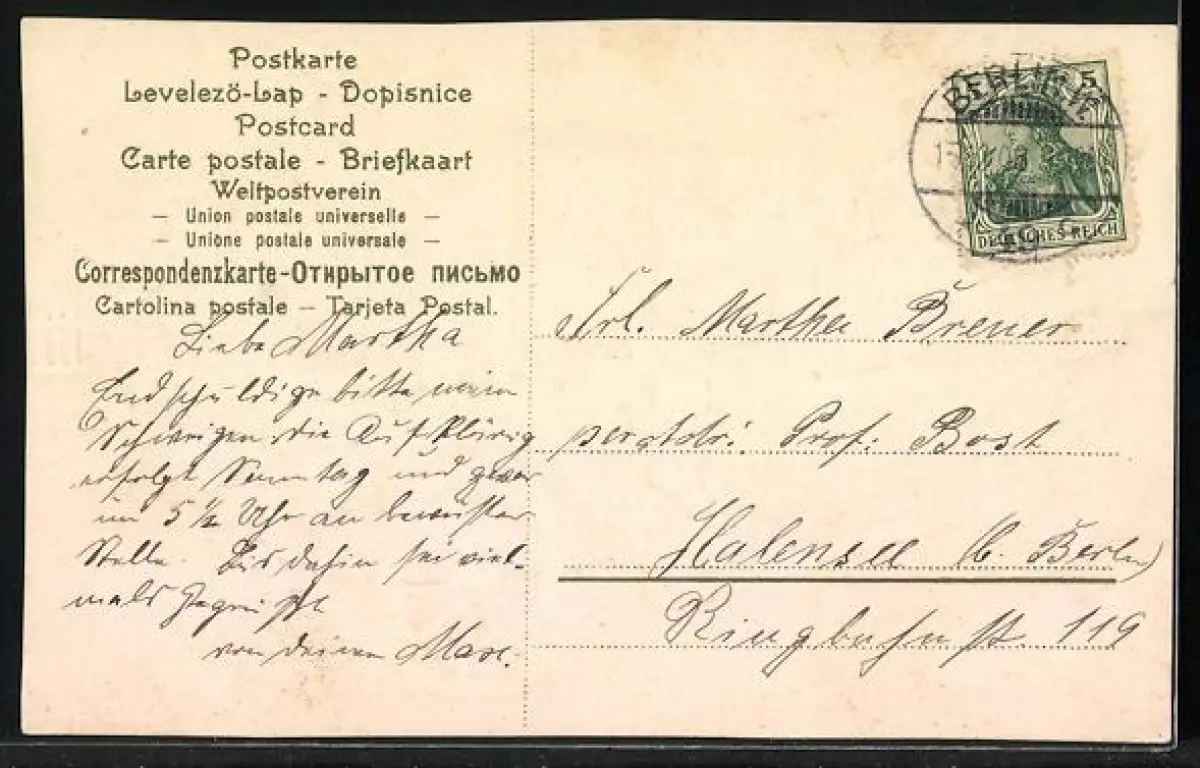 Postkarte
Levelezö-Lap - Dopisnice
Postcard
Carte postale - Briefkaart
Weltpostverein
— Union postale universelle —
— Unione postale universale —
Correspondenzkarte-Открытое письмо
Cartolina postale — Tarjeta Postal.
Liebe Martha
Endschuldige bitte mein
Schweigen. die Aufklärig
erfolgt Sonntag und zwar
um 5 ½ Uhr an bewuster
Stelle. Bis dahin sei viel-
mals gegrüßt
von deinem Max.
BERLIN W
5
DEUTSCHES REICH
Frl. Martha Breuer
Prof: Bost
Halensee b. Berlin
Ringbahnst. 119